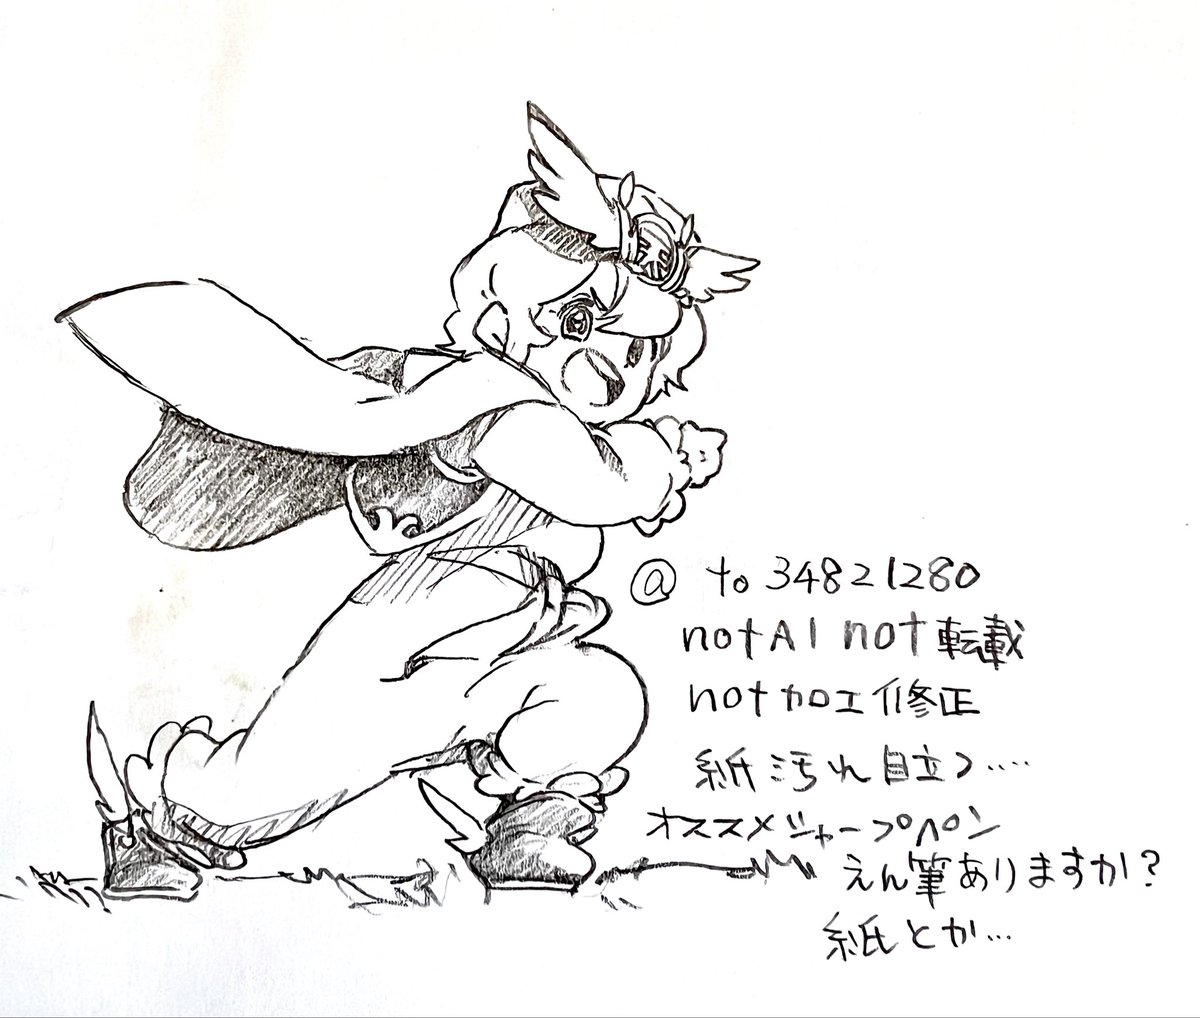 @ to 34821280
not AI not 転載
not 加工 修正
紙 汚れ 目立つ....
オススメシャープペン
えん筆ありますか?
紙とか...